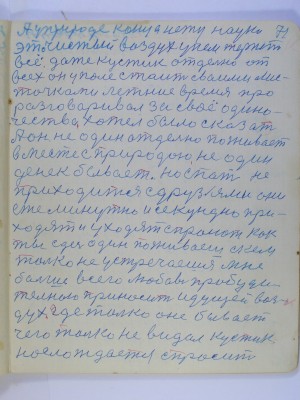 А у природе конца нету науко 71
это чистый воздух у нем
всё, даже кустик отделно от
всех он у поле стоит своими лис-
точками летние время про
разговаривал за своё одино-
чества, хотел было сказат
А он не один отделно поживает
вместе с природою, не один
денек бывает. Но спат не
приходится с друзлями они
ежеминутно и секундно при-
ходят и уходят спросит как
ты здес один поживаеш с кем
толко не устречаешся мне
болше всего любов
приносит идущей воз-
дух, где толко оне бывает
чего толко не видал кустик
наслождается спросит